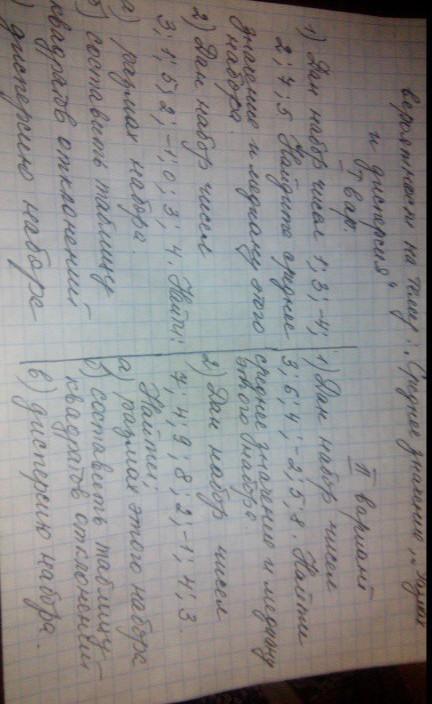 вероятности на тему: „Среднее значение, размах
и дисперсия"
I вар.
1) Дан набор чисел 1; 3; -4;
2; 7; 5 Найдите среднее
значение и медиану этого
набора.
2) Дан набор чисел
3; 1; 5; 2; -1; 0; 3; 4. Найти:
а) размах набора.
б) составить таблицу
квадратов отклонений
) дисперсию набора
II вариант
1) Дан набор чисел
3; 6; 4; -2; 5; 8. Найти
среднее значение и медиану
этого набора.
2) Дан набор чисел
7; 4; 9; 8; 2; -1; 4; 3.
Найти;
а) размах этого набора
б) составить таблицу
квадратов отклонений
в) дисперсию набора.